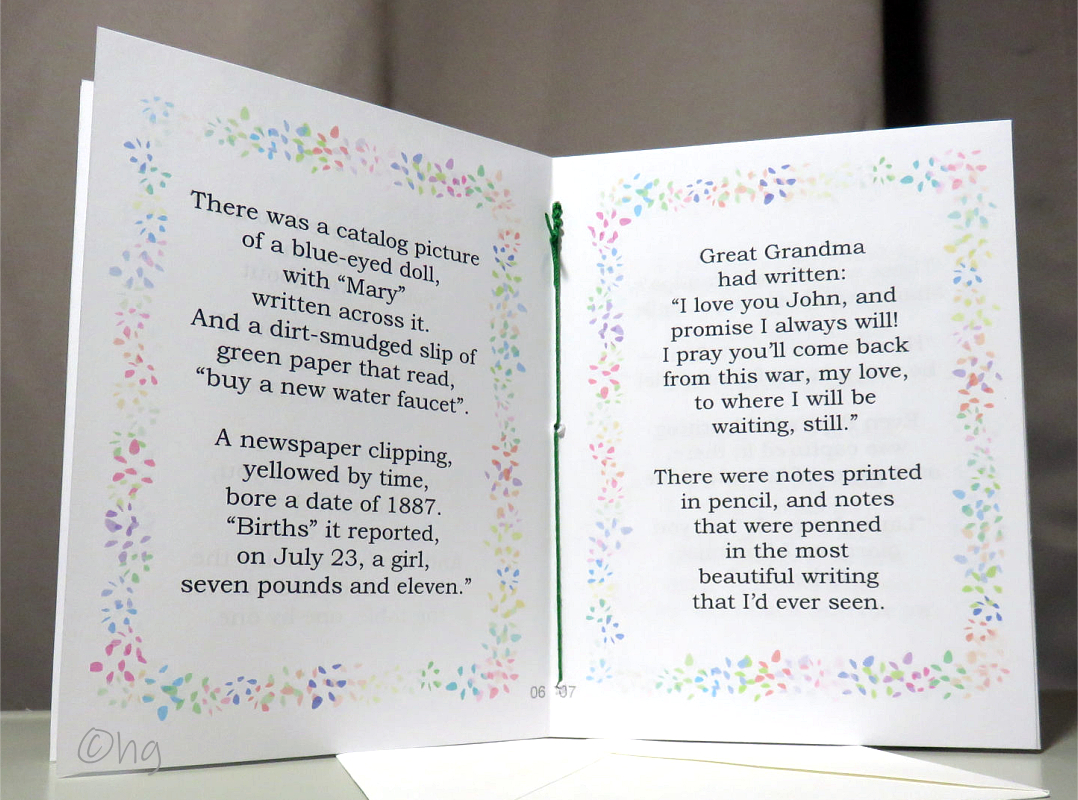 There was a catalog picture
of a blue-eyed doll,
with “Mary”
written across it.
And a dirt-smudged slip of
green paper that read,
“buy a new water faucet”.
A newspaper clipping,
yellowed by time,
bore a date of 1887.
“Births” it reported,
on July 23, a girl,
seven pounds and eleven.”
06
Great Grandma
had written:
“I love you John, and
promise I always will!
I pray you’ll come back
from this war, my love,
to where I will be
waiting, still.”
There were notes printed
in pencil, and notes
that were penned
in the most
beautiful writing
that I’d ever seen.
07
©hg